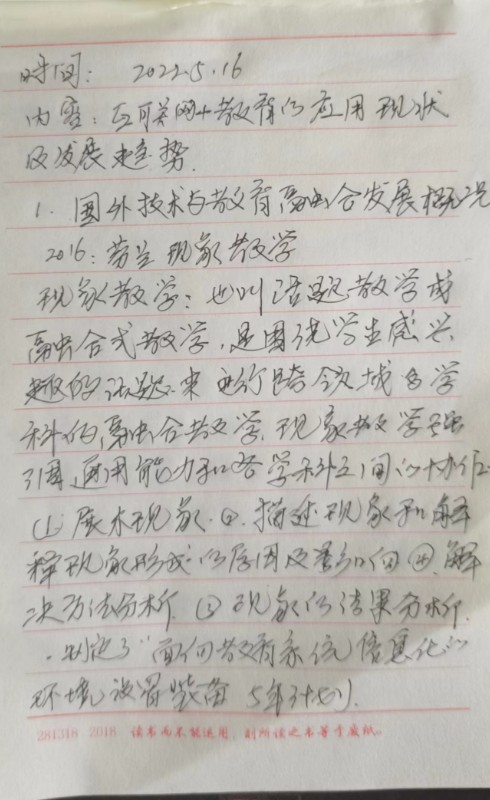 时间： 2022.5.16
内容：互联网+教育的应用现状
及发展趋势.
1. 国外技术与教育融合发展概况
2016：芬兰 现象教学
现象教学：也叫话题教学或
融合式教学，是围绕学生感兴
趣的话题来进行跨领域多学
科的融合教学.现象教学强
调通用能力和各学科之间的协作
(1) 展示现象. ②. 描述现象和解
释现象形成的原因及影响因 解
决方法分析 现象的结果分析.
·制定了“面向教育系统信息化的
环境设置装备 5年计划
281318 2018 读书而不能运用，则所读之书等于废纸。